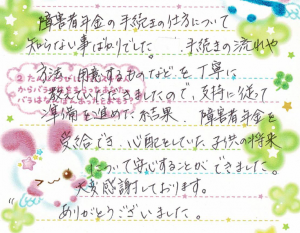 障害者年金の手続きの仕方について
知らない事ばかりでした。手続きの流れや
方法、用意するものなどを丁寧に
教えていただきましたので、支持に従って
準備を進めた結果、障害者年金を
受給でき、心配としていた子供の将来
について安心することができました。
大変感謝しております。
ありがとうございました。